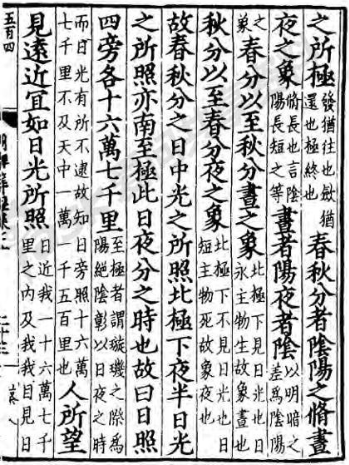 之所極發猶往也斂猶還也極終也春秋分者陰陽之脩晝
夜之象脩長也言陰陽長短之等晝者陽夜者陰以明暗之差為陰陽
之象春分以至秋分晝之象北極下見日光也日永主物生故象晝也
秋分以至春分夜之象北極下不見日光也日短主物死故象夜也
故春秋分之日中光之所照北極下夜半日光
之所照亦南至極此日夜分之時也故曰日照
四旁各十六萬七千里至極者謂璇璣之際為陽絕陰彰以日夜之時
而日光有所不逮故知日旁照十六萬七千里不及天中一萬一千五百里也人所望
見遠近宜如日光所照日近我一十六萬七千里之內及我我目見日
五百四